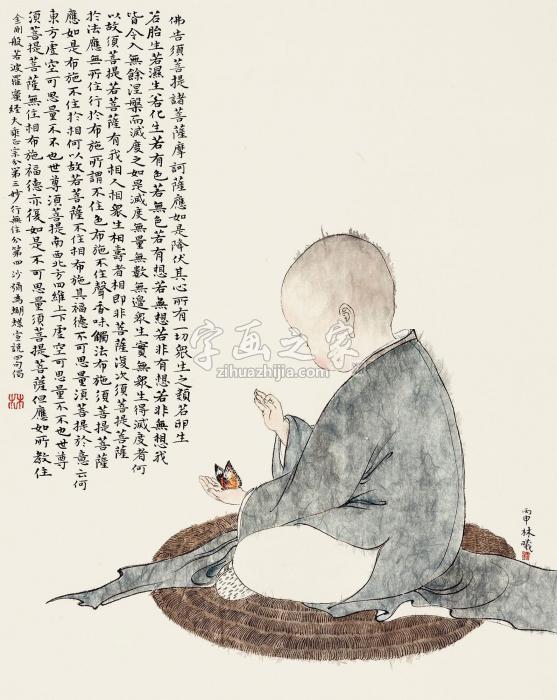 佛告須菩提諸菩薩摩訶薩應如是降伏其心所有一切衆生之類若卵生
若胎生若濕生若化生若有色若無色若有想若無想若非有想若非無想我
皆令入無餘涅槃而滅度之如是滅度無量無數無邊衆生實無衆生得滅度者何
以故須菩提若菩薩有我相人相衆生相壽者相即非菩薩復次須菩提菩薩
於法應無所住行於布施所謂不住色布施不住聲香味觸法布施須菩提菩薩
應如是布施不住於相何以故若菩薩不住相布施其福德不可思量須菩提於意云何
東方虛空可思量不不也世尊須菩提南西北方四維上下虛空可思量不不也世尊
須菩提菩薩無住相布施福德亦復如是不可思量須菩提菩薩但應如所教住
金剛般若波羅蜜經大乘正宗分第三妙行無住分第四沙彌為蝴蝶宣說四句偈
丙申林曦
字画之家
zihuazhijia.com